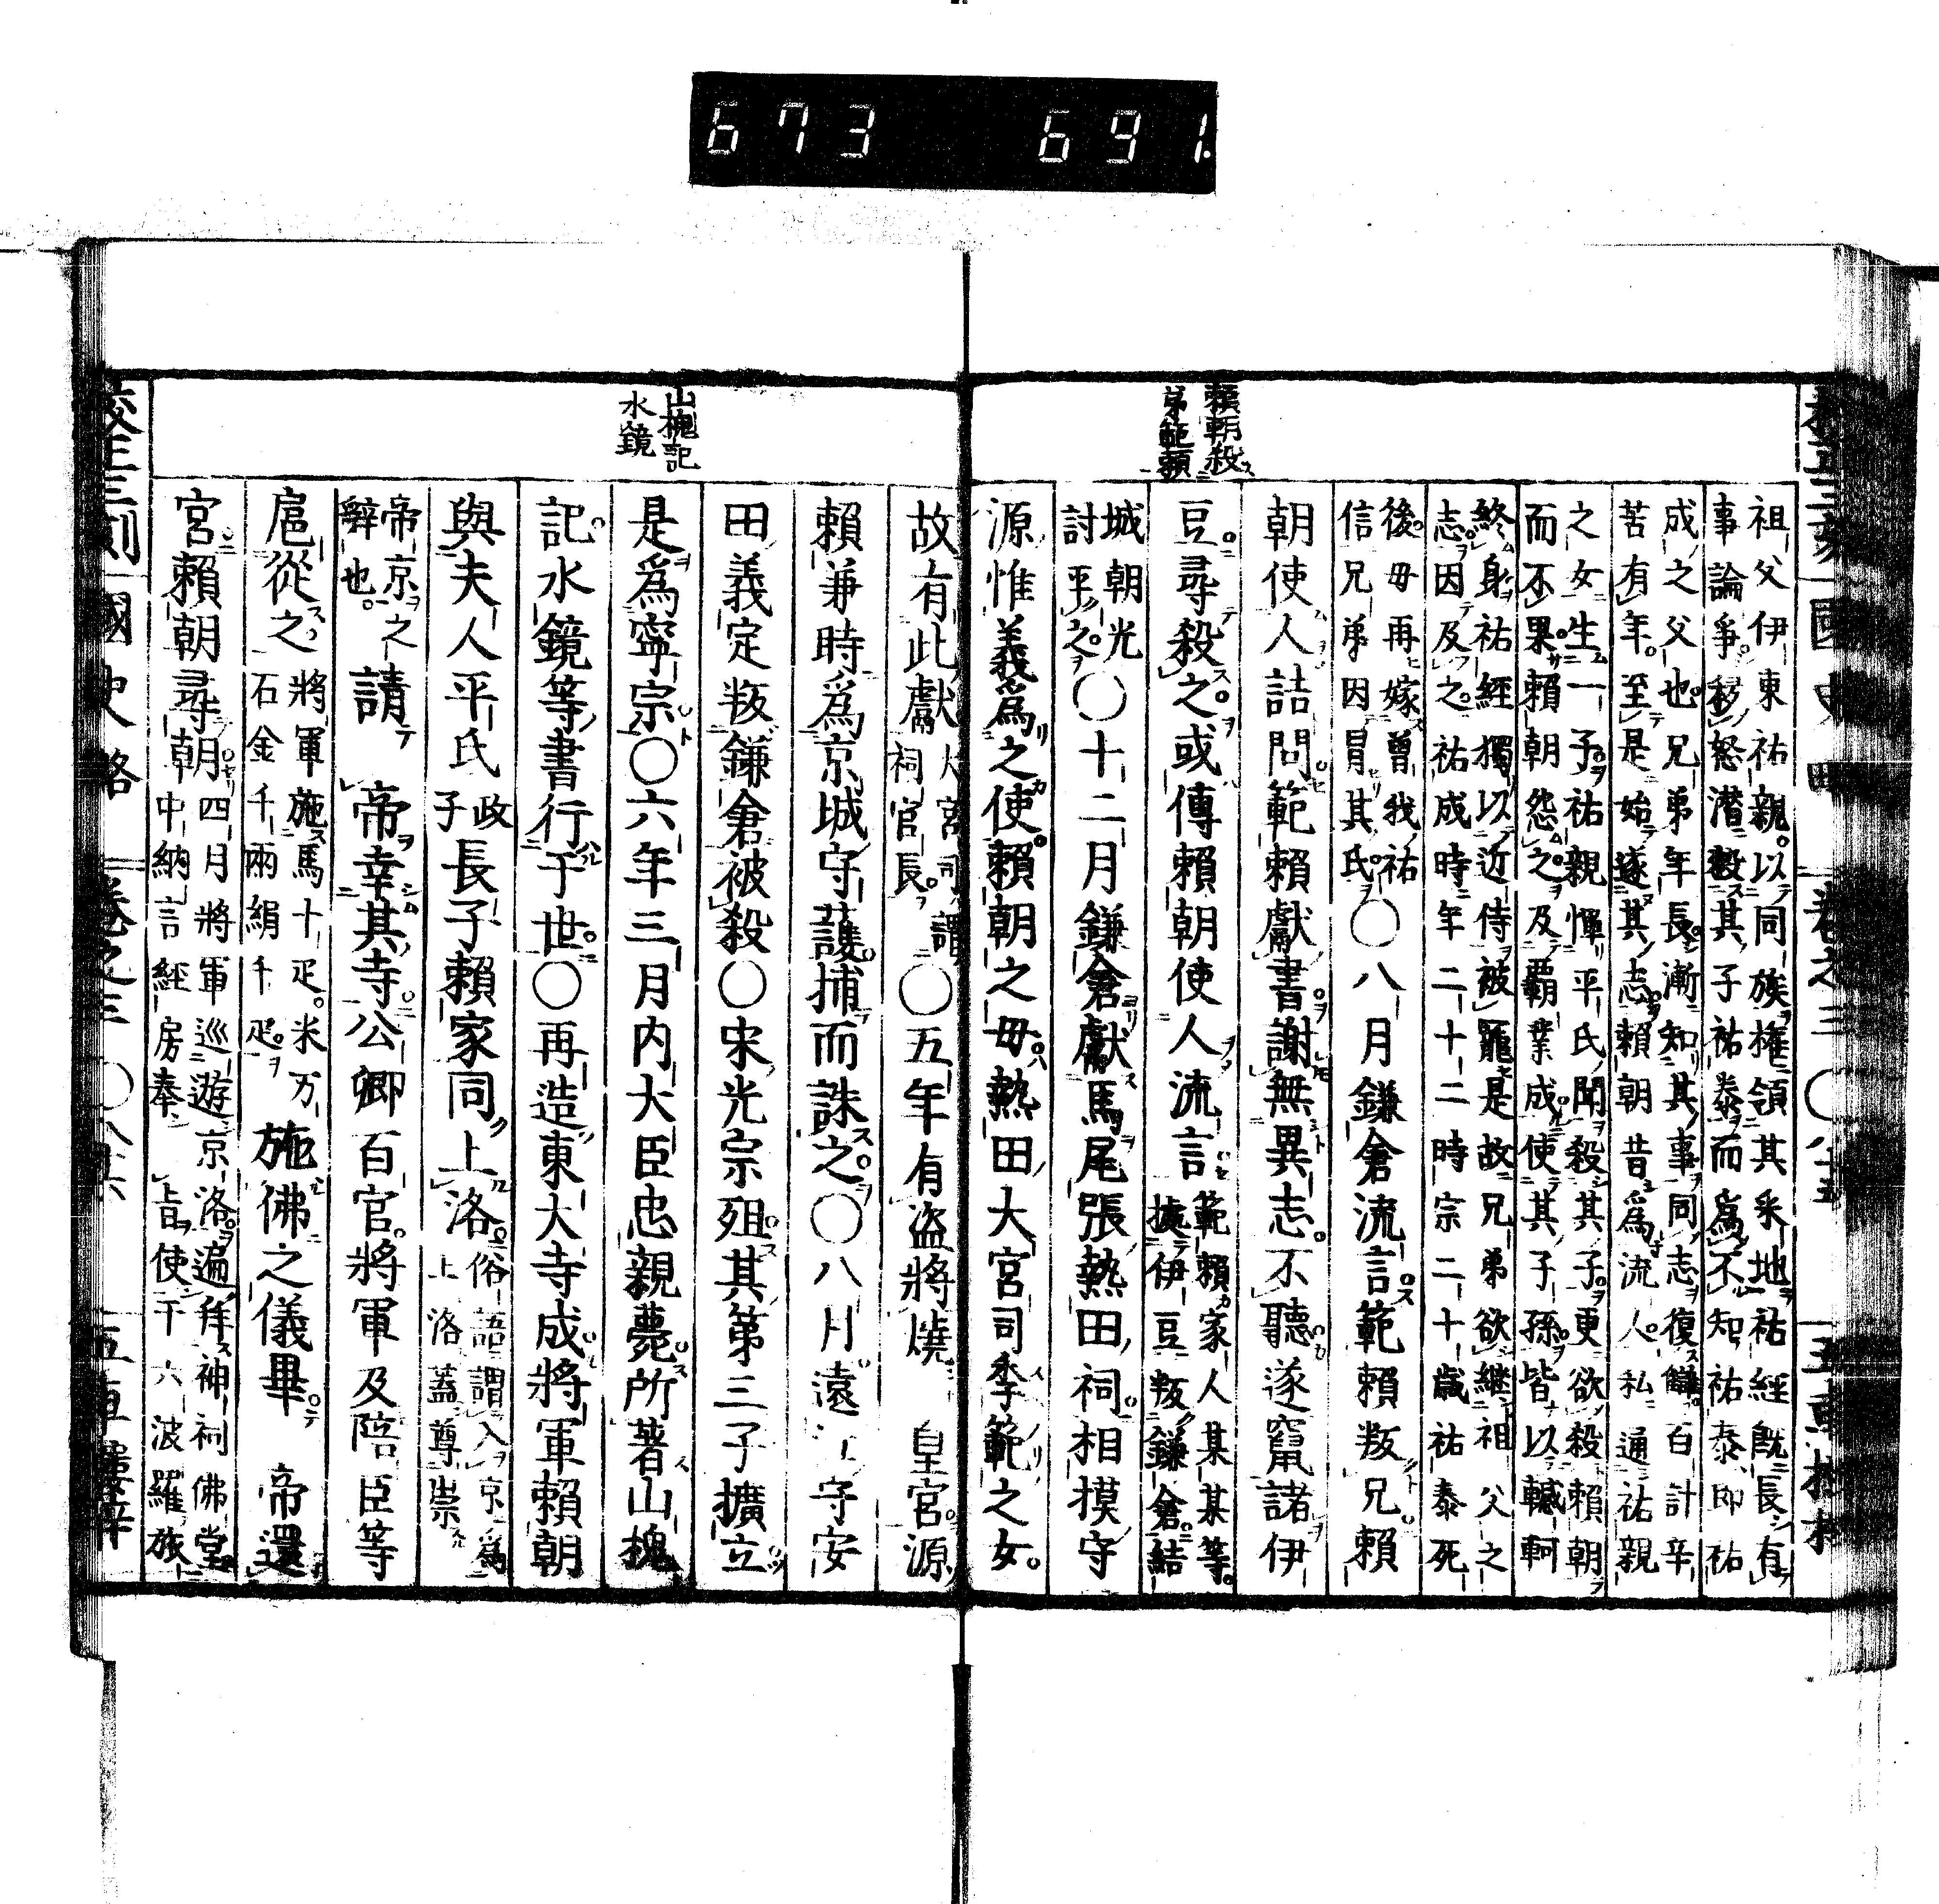 673 691.
祖父伊東祐親以同族權領其釆地祐經既長有
事論爭祐移怒潜殺其子祐泰而爲不知祐泰即祐
成之父也兄弟年長漸知其事同志復讎百計辛
苦有年至是始遂其志賴朝昔爲流人私通祐親
之女生一子祐親憚平氏聞殺其子更欲殺賴朝
而不果賴朝怨之及覇業成使其子孫皆以轗軻
終身祐經獨以近侍被寵是故兄弟欲継祖父之
志因及之祐成時年二十二時宗二十歳祐泰死
後毋再嫁曽我祐
信兄弟因冒其氏
〇八月鎌倉流言範賴叛兄賴
賴朝殺
弟範賴
朝使人詰問範賴獻書謝無異志不聽遂竄諸伊
豆尋殺之或傳賴朝使人流言
範賴家人某某等
據伊豆叛鎌倉結
城朝光
討平之
〇十二月鎌倉獻馬尾張熱田祠相摸守
源惟義爲之使賴朝之毋熱田大宮司季範之女
故有此獻
大宮司謂
祠官長
〇五年有盜將燒 皇宮源
賴兼時爲京城守護捕而誅之〇八月遠江守安
田義定叛鎌倉被殺〇宋光宗殂其第三子擴立
山槐記
水鏡
是爲寧宗〇六年三月内大臣忠親薨所著山槐
記水鏡等書行于世〇再造東大寺成將軍賴朝
與夫人平氏
政
子
長子賴家同上洛
俗語謂入京爲
上洛蓋尊崇
帝京之
辭也
請 帝幸其寺公卿百官將軍及陪臣等
扈從之
將軍施馬十疋米万
石金千兩絹千疋
施佛之儀畢 帝還
宮賴朝尋朝
四月將軍巡遊京洛遍拜神祠佛堂
中納言經房奉 旨使于六波羅旅
校正三刻 國史略 卷之三 〇